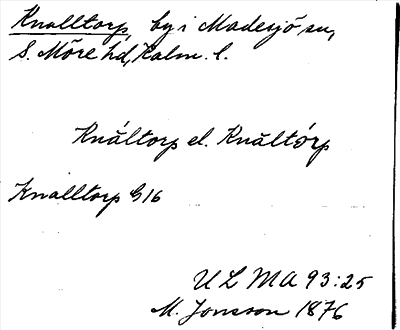 Knalltorp, by i Madesjö sn,
S. Möre hd, Kalm. l.
Knáltorp el. Knältórp
Knalltorp G16
ULMA 93:25
M. Jonsson 1876